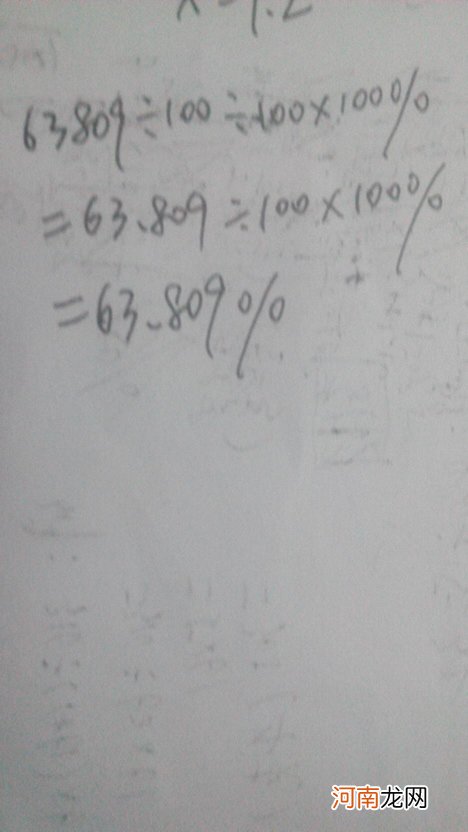 63809÷100÷100×100%
=63.809÷100×100%
=63.809%
河南龙网